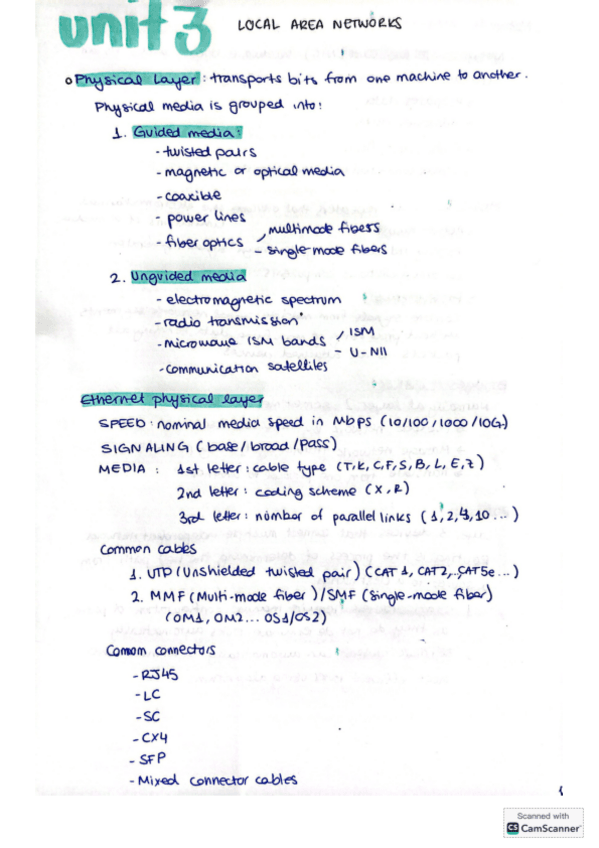 unit 3 LOCAL AREA NETWORKS
o Physical Layer: transports bits from one machine to another.
Physical media is grouped into:
1. Guided media:
- twisted pairs
- magnetic or optical media
- coaxible
- power lines
- fiber optics / multimode fibers
- single-mode fibers
2. Unguided media
- electromagnetic spectrum
- radio transmission
- microwave ISM bands / ISM
- U-NII
- communication satellites
Ethernet physical layer
SPEED: nominal media speed in Mbps (10/100/1000/10G)
SIGNALING (base/broad/pass)
MEDIA: 1st letter: cable type (T,K,C,F,S,B,L,E,Z)
2nd letter: coding scheme (X,R)
3rd letter: number of parallel links (1,2,4,10...)
Common cables
1. UTP (Unshielded twisted pair) (CAT1, CAT2,..CAT5e...)
2. MMF (Multi-mode fiber)/SMF (single-mode fiber)
(OM1, OM2... OS1/OS2)
Comom connectors
- RJ45
- LC
- SC
- CX4
- SFP
- Mixed connector cables
1
Scanned with
CS CamScanner